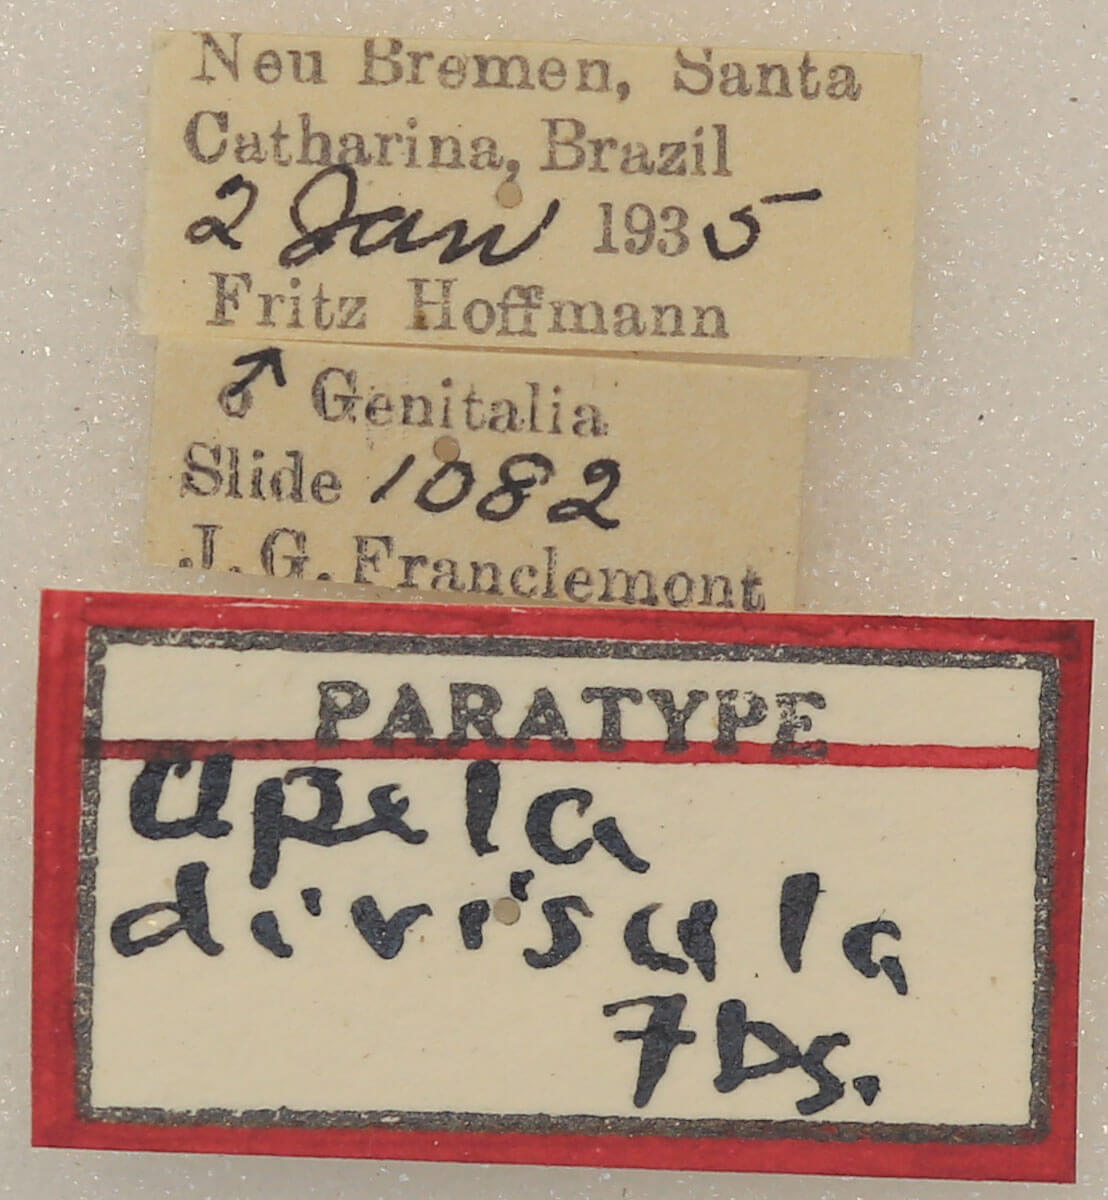 Neu Bremen, Santa
Catharina, Brazil
2 Jan 1935
Fritz Hoffmann
♂ Genitalia
Slide 1082
J. G. Franclemont
PARATYPE
Apela
divisula